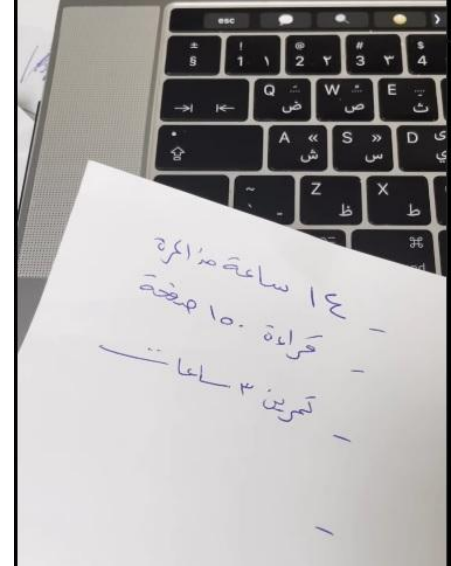 esc
± § ! 1 ١ @ 2 ٢ # 3 ٣ $ 4
Q ض W ص E ث
A ش « S س » D
~ ` Z ظ X ط
⌘
- ١٤ ساعة من
- قراءة ١٥٠ صفحة
- تمرين ٣ ساعات
-